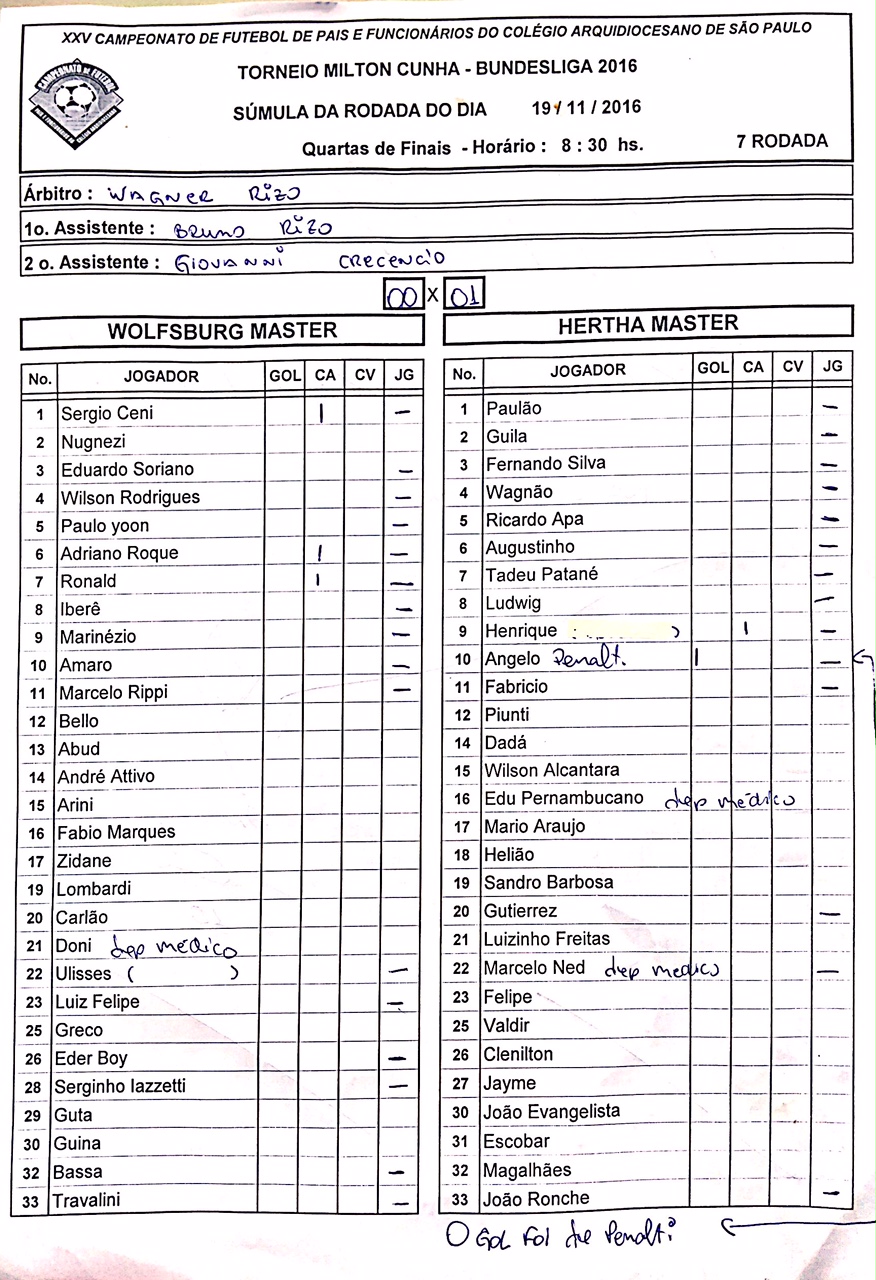 XXV CAMPEONATO DE FUTEBOL DE PAIS E FUNCIONÁRIOS DO COLÉGIO ARQUIDIOCESANO DE SÃO PAULO
CAMPEONATO DE FUTEBOL
TORNEIO MILTON CUNHA - BUNDESLIGA 2016
SÚMULA DA RODADA DO DIA 19/11/2016
Quartas de Finais - Horário : 8 : 30 hs. 7 RODADA
Árbitro : WAGNER RIZO
1o. Assistente : BRUNO RIZO
2 o. Assistente : GIOVANNI CRECENCIO
00 X 01
WOLFSBURG MASTER
No. JOGADOR GOL CA CV JG
1 Sergio Ceni | —
2 Nugnezi
3 Eduardo Soriano —
4 Wilson Rodrigues —
5 Paulo yoon —
6 Adriano Roque | —
7 Ronald | —
8 Iberê —
9 Marinézio —
10 Amaro —
11 Marcelo Rippi —
12 Bello
13 Abud
14 André Attivo
15 Arini
16 Fabio Marques
17 Zidane
19 Lombardi
20 Carlão
21 Doni dep médico
22 Ulisses ( ) —
23 Luiz Felipe —
25 Greco
26 Eder Boy —
28 Serginho Iazzetti —
29 Guta
30 Guina
32 Bassa —
33 Travalini —
HERTHA MASTER
No. JOGADOR GOL CA CV JG
1 Paulão —
2 Guila —
3 Fernando Silva —
4 Wagnão —
5 Ricardo Apa —
6 Augustinho —
7 Tadeu Patané —
8 Ludwig —
9 Henrique ) | —
10 Angelo Penalt. | —
11 Fabricio —
12 Piunti
14 Dadá
15 Wilson Alcantara
16 Edu Pernambucano dep médico
17 Mario Araujo
18 Helião
19 Sandro Barbosa
20 Gutierrez —
21 Luizinho Freitas
22 Marcelo Ned dep medico —
23 Felipe
25 Valdir
26 Clenilton
27 Jayme
30 João Evangelista
31 Escobar
32 Magalhães
33 João Ronche —
O GOL FOI de Penalti